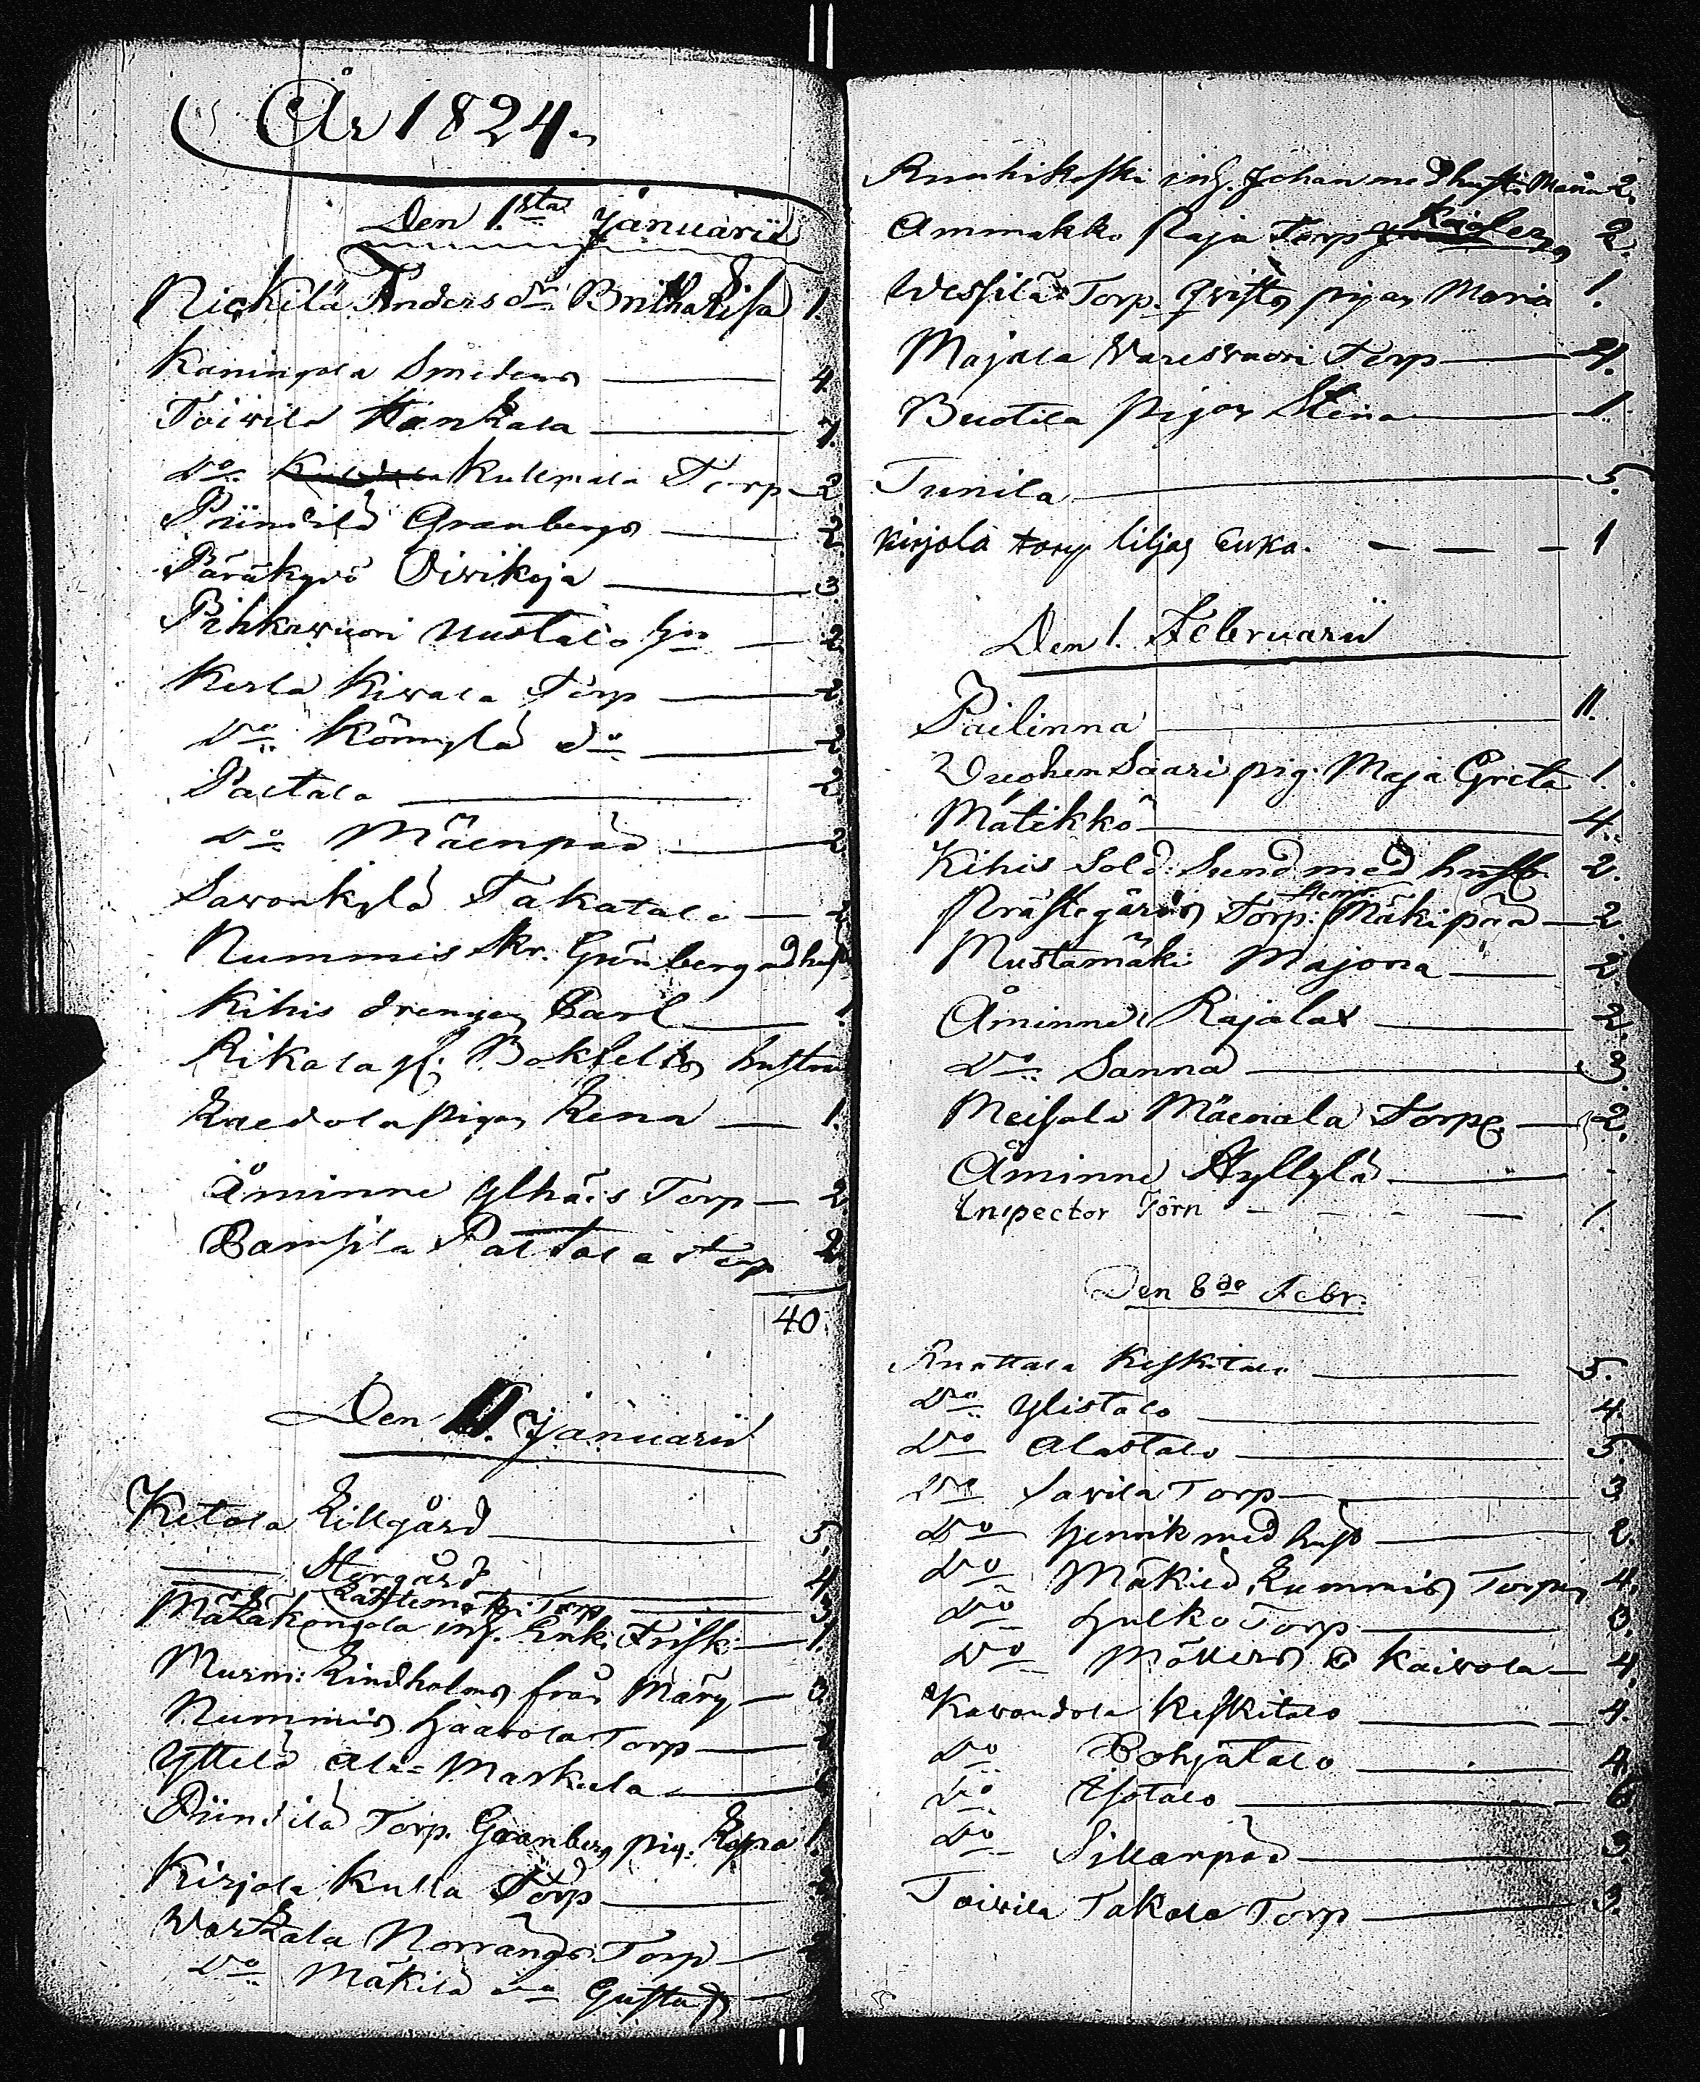 År 1824.
Den 1.sta Januarii
Nickilä Anders dr: Britha Lisa 1.
Kaningola Smedens 4.
Toivila Hankala 7.
Do Kullmala Torp 2
Pündilä Granbergs 2.
Päräkyrö Oivikoja 3.
Pihkavuori Uustalo 2
Kerla Kivala Torp 2
Do: Könnylä do 2
Paltala 2
Do Mäenpää 2
Savonkylä Takatalo 2
Nummis Skr. Grönberg md hust
Kihis drengen Carl 1.
Rikala Bokfelts hustru
pigan Lena 1.
Åminne Ylhäis Torp 2
Pamfila Paltala Torp 2.
40.
Den 11. Januarii
Ketala Lillgård 5.
Storgård 4
Kattlemäki Torp 3
inh. Erik Frisk 1.
Murm: Lindholms från Märy 3
Nummis Haavola Torp
Yttelä Ala-Markula 6
Pündilä Torp. Granberg pig: 1.
Kirjala Kulla Torp
Varttala Norrängs Torp
Do Mäkilä do Gustaf
Ruuhikoski inh. Johan med hust. Maria 2.
Ammakko Raja Torp 2.
Wessilä Torp. Qvist pigan Maria 1.
Majala Varesvuori Torp 4.
Buotila Pigan Stina 1.
Tunila 5.
Kirjola torp liljas Enka. 1
Den 1. Februarii
Pailinna 11.
Vuohensaari pig: Maja Greta 1.
Mätikkö 4.
Kihis Sold: Sund med hust. 2.
Prästegårds Torp: Mäkipää 2.
Mustamäki Majona 2.
Åminne Rajalax 2.
Do: Sanna 3.
Meisala Mäenala Torp 2.
Åminne Hyllylä
Inspector Törn 1.
Den 8de Febr.
Knattala Keskitalo 5.
Do: Ylistalo 4.
Do Alastalo 5.
Do Savila Torp 3
Do Henrik med hust 2.
Do Mäkilä Lummis Torp 4.
Do Hulko Torp 3.
Do Möllers Kaivola 4
Kavandola Keskitalo 4.
Do Pohjatalo 4
Do Isotalo 6.
Do Sillanpää 3.
Toivila Takala Torp 3.